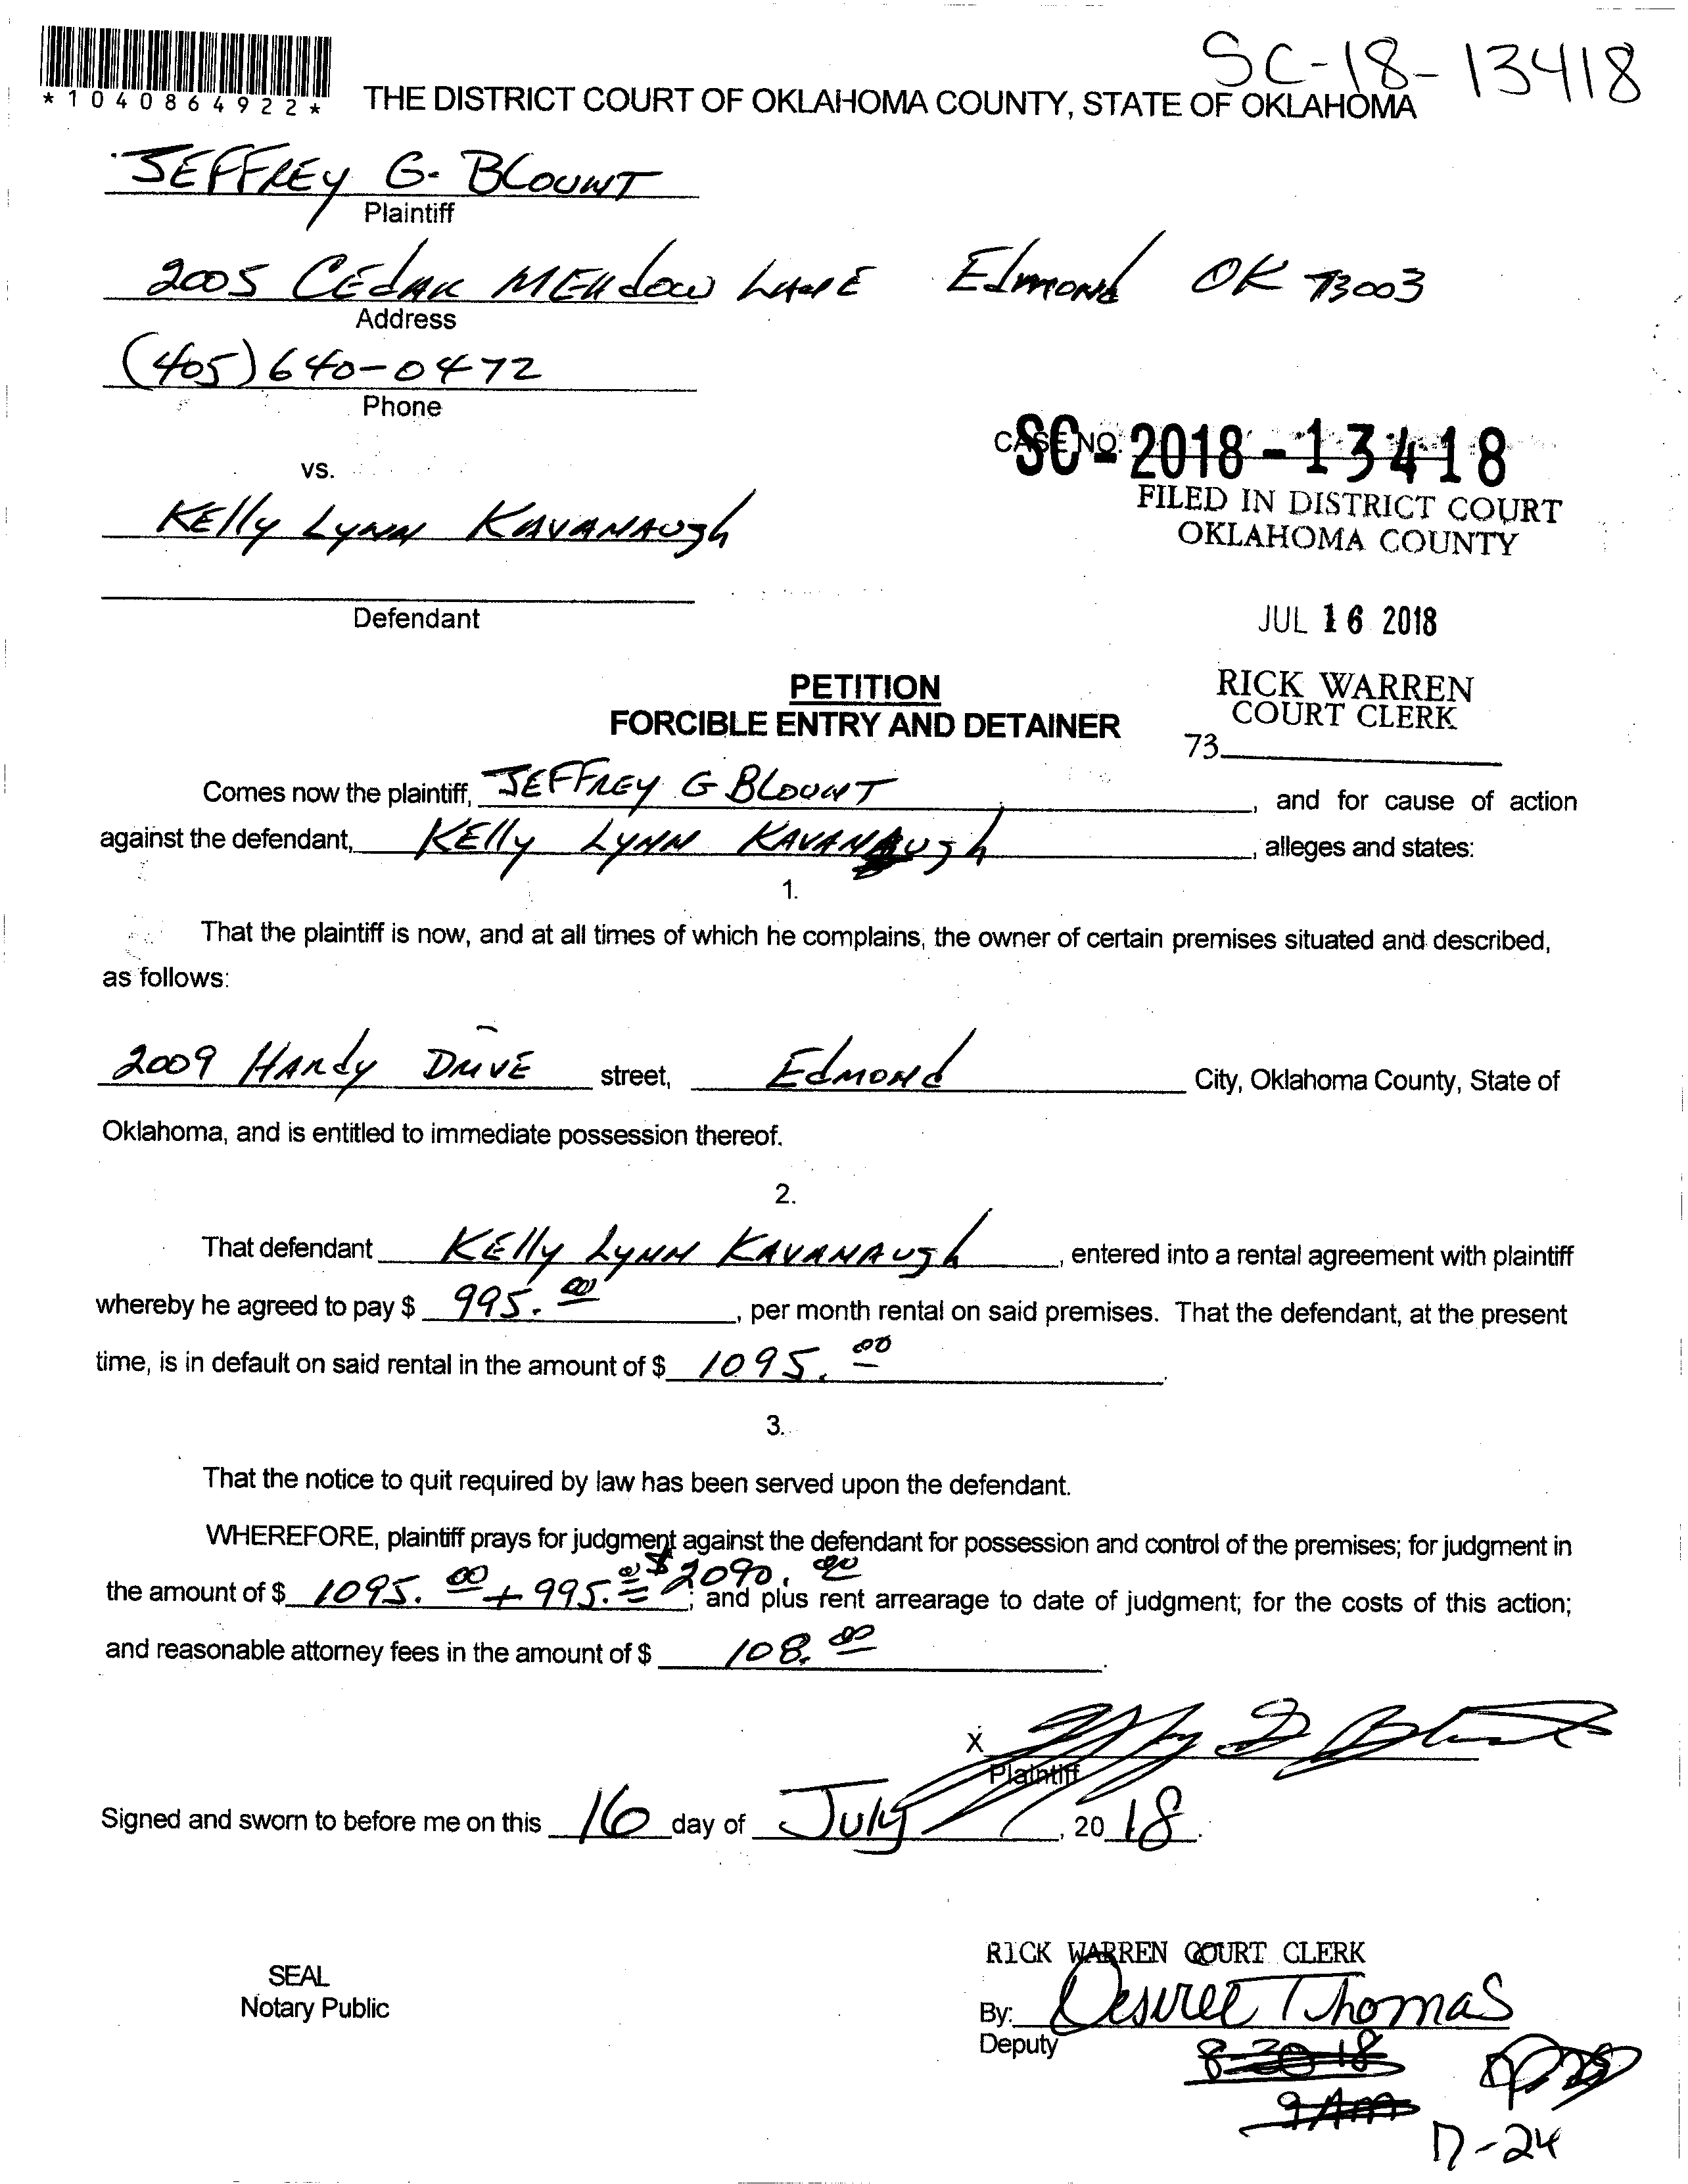 SC-18-13418
*1040864922*
THE DISTRICT COURT OF OKLAHOMA COUNTY, STATE OF OKLAHOMA
JEFFREY G. BLOUNT
Plaintiff
2005 CEdAR MEAdow LANE Edmond OK 73003
Address
(405) 640-0472
Phone
CASE NO. SC-2018-13418
FILED IN DISTRICT COURT
OKLAHOMA COUNTY
vs.
KElly LyNN KAVANAugh
Defendant
JUL 16 2018
RICK WARREN
COURT CLERK
73
PETITION
FORCIBLE ENTRY AND DETAINER
Comes now the plaintiff, JEFFREY G BLOUNT, and for cause of action
against the defendant, KElly LyNN KAVANAugh, alleges and states:
1.
That the plaintiff is now, and at all times of which he complains, the owner of certain premises situated and described,
as follows:
2009 HARdy DRIVE street, EdmoNd City, Oklahoma County, State of
Oklahoma, and is entitled to immediate possession thereof.
2.
That defendant KElly LyNN KAVANAugh, entered into a rental agreement with plaintiff
whereby he agreed to pay $ 995.00, per month rental on said premises. That the defendant, at the present
time, is in default on said rental in the amount of $ 1095.00.
3.
That the notice to quit required by law has been served upon the defendant.
WHEREFORE, plaintiff prays for judgment against the defendant for possession and control of the premises; for judgment in
the amount of $ 1095.00 + 995.00 = $2090.00; and plus rent arrearage to date of judgment; for the costs of this action;
and reasonable attorney fees in the amount of $ 108.00.
X
Plaintiff
Signed and sworn to before me on this 16 day of July, 2018.
RICK WARREN COURT CLERK
SEAL
Notary Public
By: Desiree Thomas
Deputy
8-30-18
9 Am
7-24